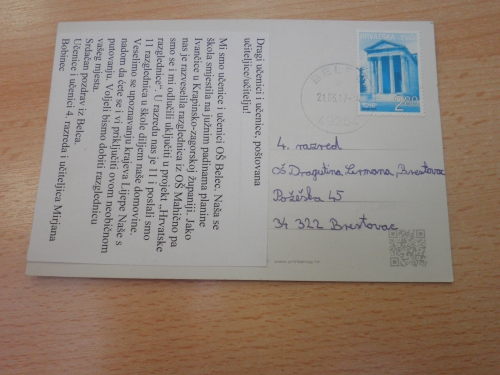 Dragi učenici i učenice, poštovana
učiteljice/učitelju!
Mi smo učenice i učenici OŠ Belec. Naša se
škola smjestila na južnim padinama planine
Ivančice u Krapinsko-zagorskoj županiji. Jako
nas je razveselila razglednica iz OŠ Mahično pa
smo se i mi odlučili uključiti u projekt „Hrvatske
razglednice". U razredu nas je 11 i poslali smo
11 razglednica u škole diljem naše domovine.
Veselimo se upoznavanju krajeva Lijepe Naše s
nadom da ćete se i vi priključiti ovom neobičnom
putovanju. Voljeli bismo dobiti razglednicu
vašeg mjesta.
Srdačan pozdrav iz Belca.
Učenice i učenici 4. razreda i učiteljica Mirjana
Bobinec
HRVATSKA
2,80
HP
BELEC
4. razred
OŠ Dragutina Lermana, Brestovac
Požeška 45
34 322 Brestovac